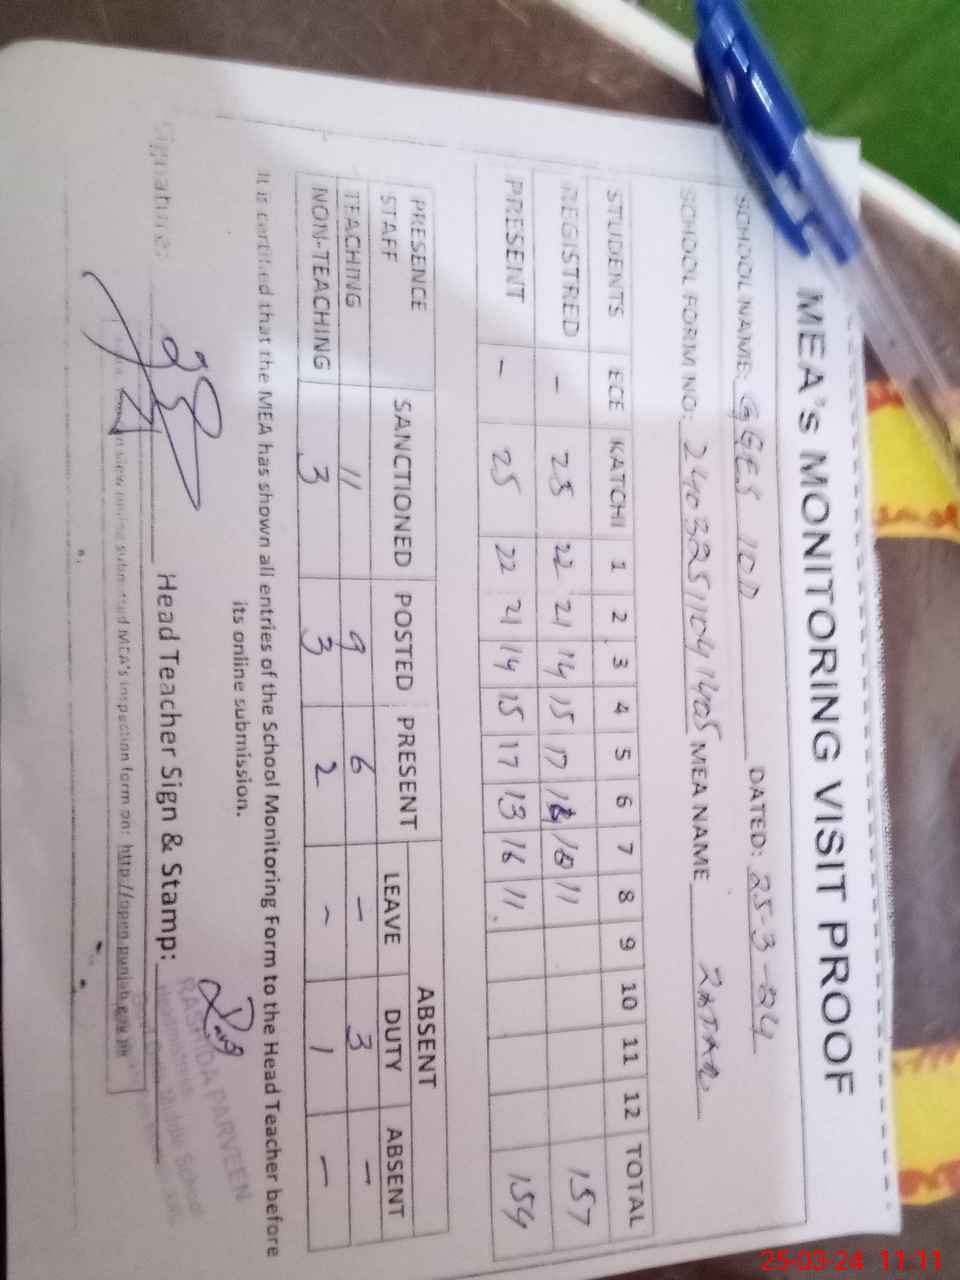 MEA's MONITORING VISIT PROOF
SCHOOL NAME: GGES 10D DATED: 25-3-24
SCHOOL FORM NO: MEA NAME
STUDENTS ECE KATCHI 1 2 3 4 5 6 7 8 9 10 11 12 TOTAL
REGISTRED - 25 22 21 14 15 17 16 11 157
PRESENT - 25 22 21 14 15 17 13 16 11 154
PRESENCE STAFF SANCTIONED POSTED PRESENT ABSENT
LEAVE DUTY ABSENT
TEACHING 11 9 6 - 3 -
NON-TEACHING 3 3 2 - 1 -
It is certified that the MEA has shown all entries of the School Monitoring Form to the Head Teacher before
its online submission.
Signature: Head Teacher Sign & Stamp:
RASHIDA PARVEEN
Middle School
view online submitted MEA's inspection form on: http://open.punjab.gov.pk
25-03-24 11:11